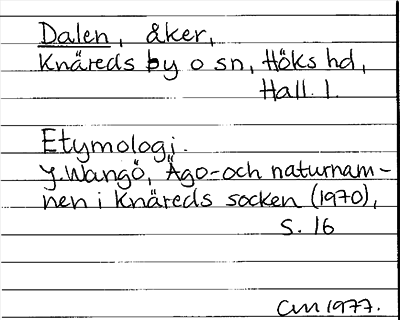 Dalen, åker,
Knäreds by o sn, Höks hd,
Hall. l.
Etymologi.
J. Wangö, Ägo- och naturnam-
nen i Knäreds socken (1970),
s. 16
CM 1977.